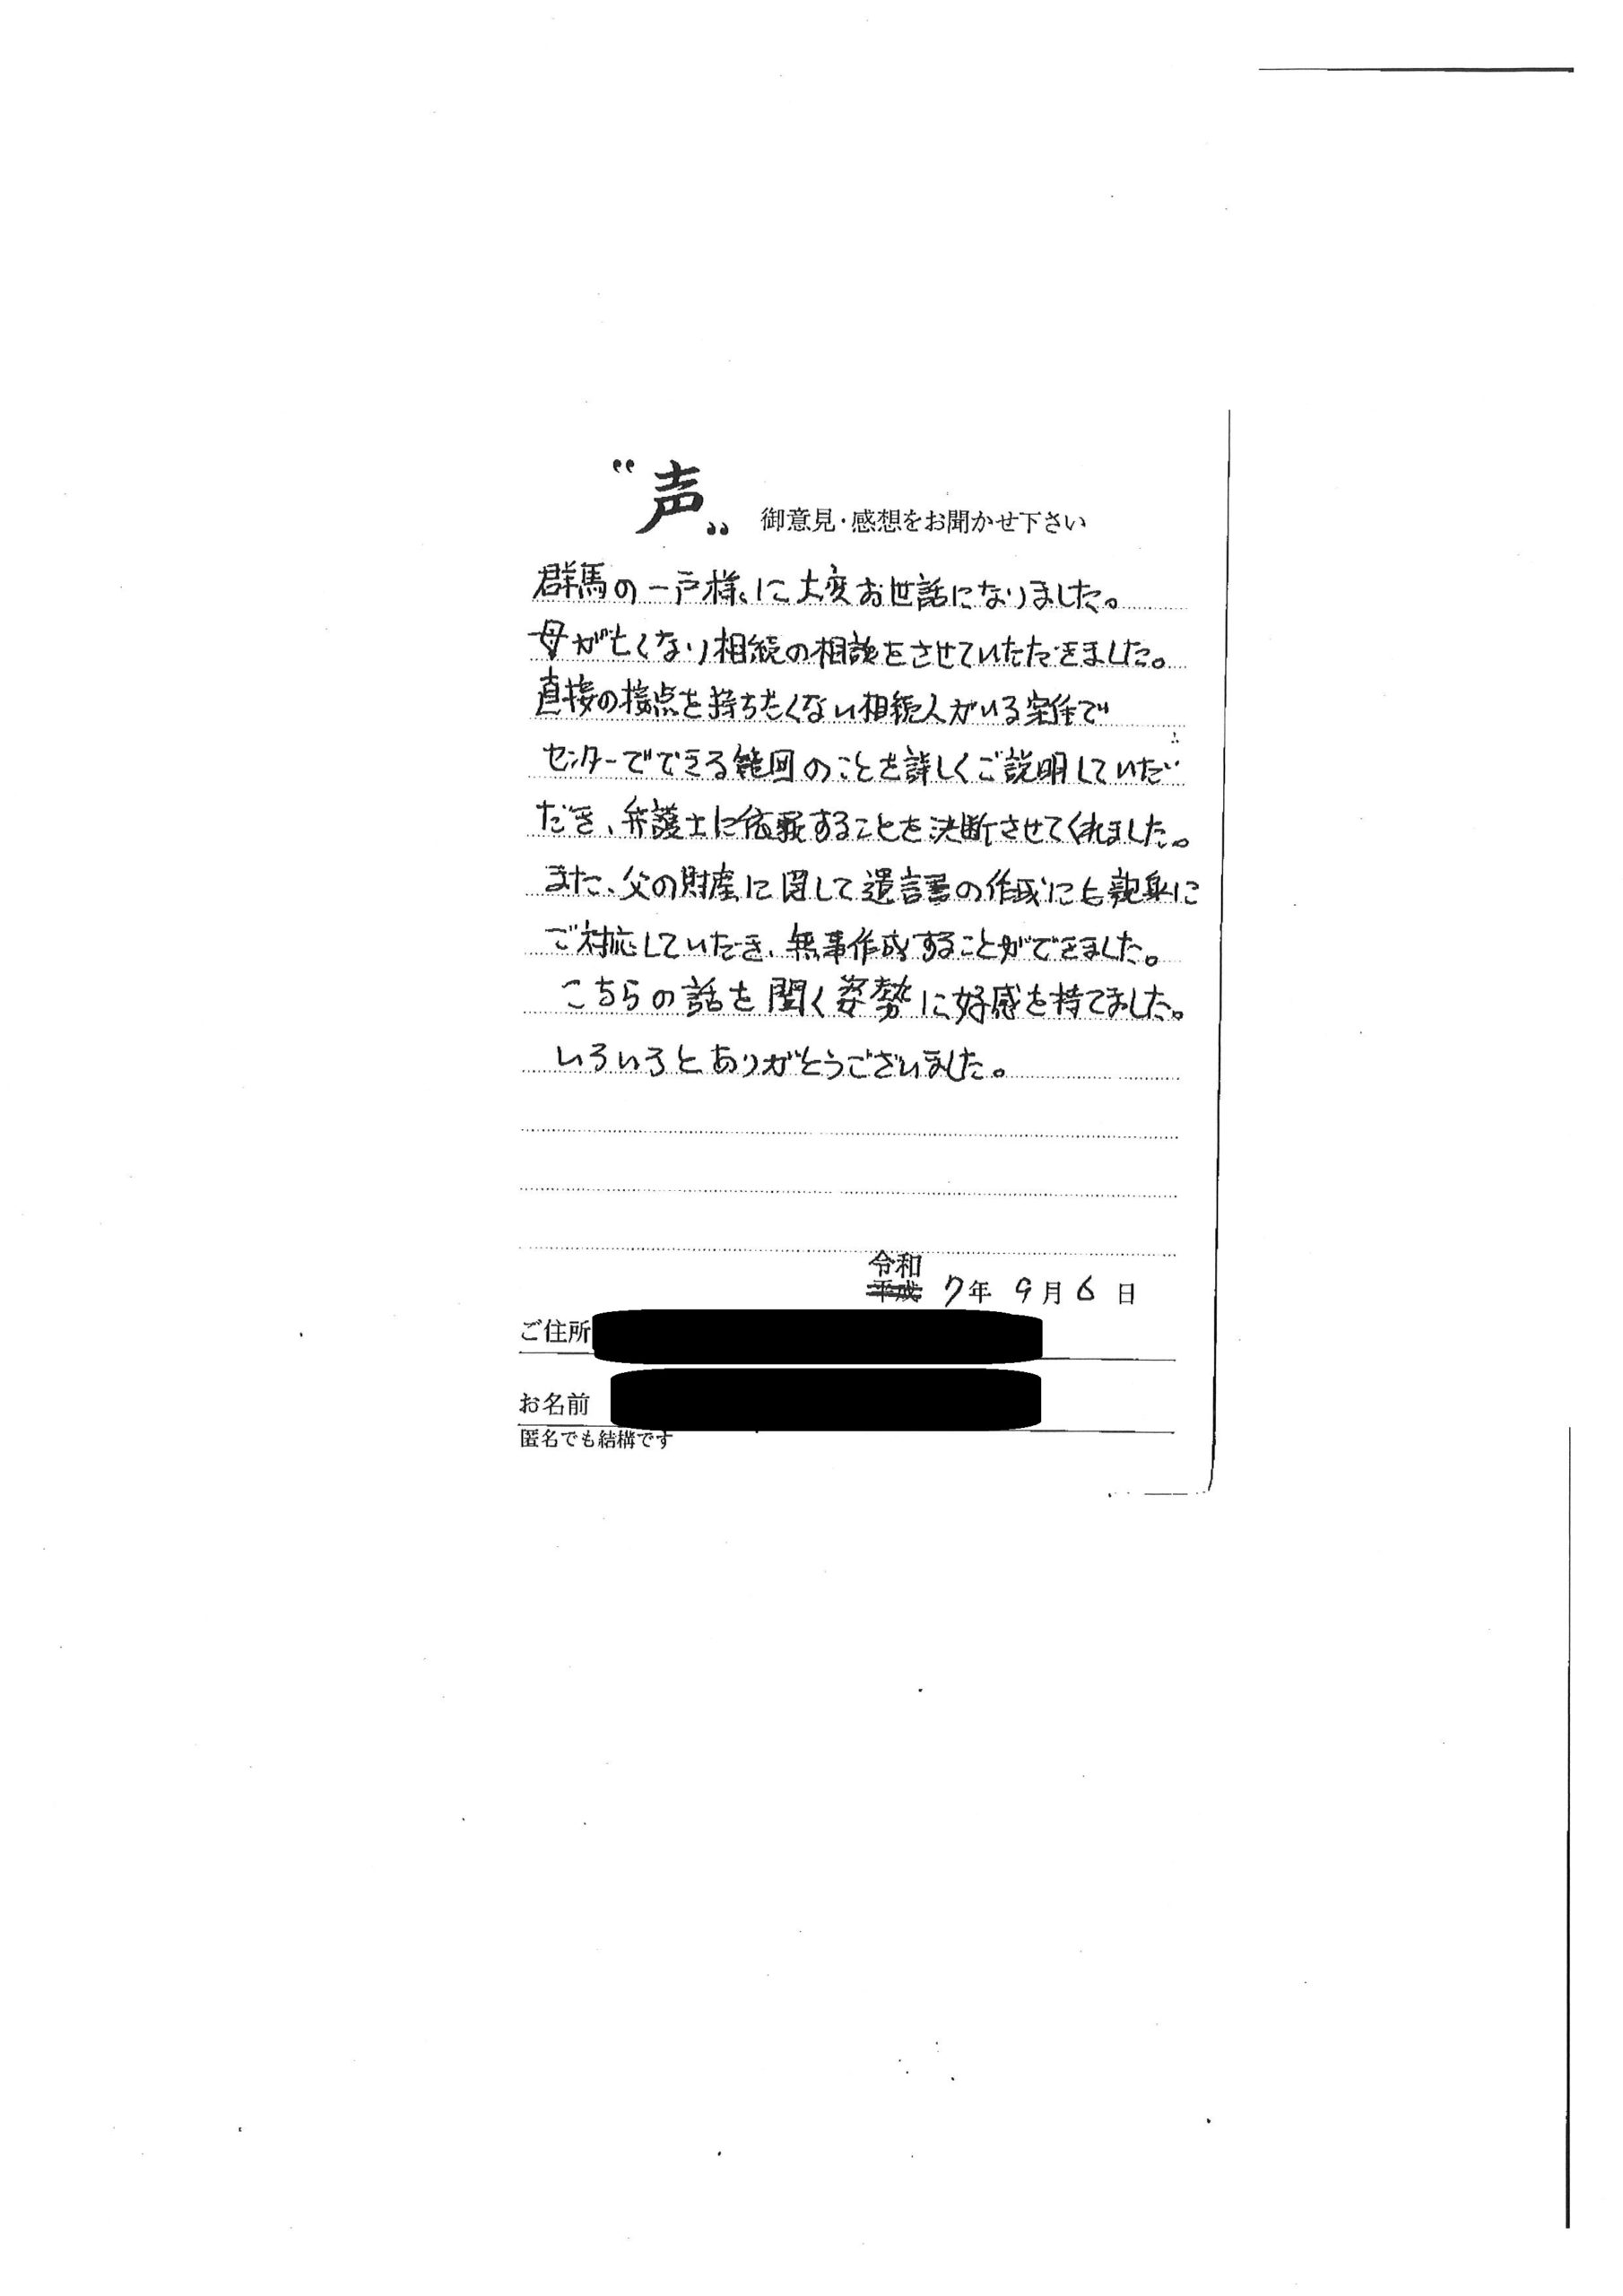 “声” 御意見・感想をお聞かせ下さい
群馬の一戸様に大変お世話になりました。
母が亡くなり相続の相談をさせていただきました。
直接の接点を持ちたくない相続人がいる案件で
センターでできる範囲のことを詳しくご説明していただ
だき、弁護士に依頼することを決断させてくれました。
また、父の財産に関して遺言書の作成にも親身に
ご対応していただき、無事作成することができました。
こちらの話を聞く姿勢に好感を持てました。
いろいろとありがとうございました。
令和
平成 7年 9月 6日
ご住所
お名前
匿名でも結構です